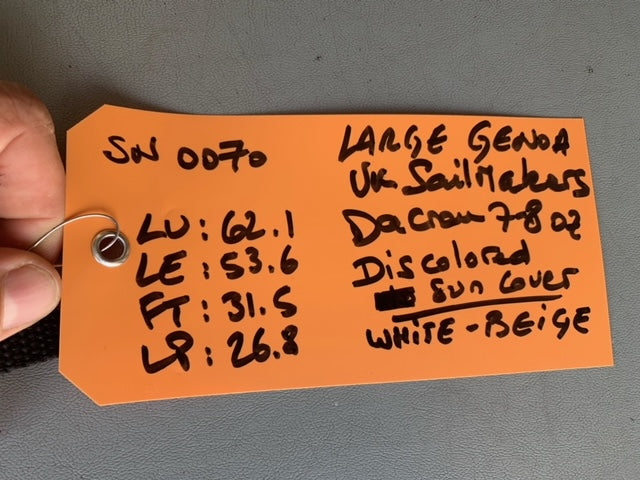 SN 0070
LU: 62.1
LE: 53.6
FT: 31.5
LP: 26.8
LARGE GENOA
UK SailMakers
Dacron 7-8 oz
Discolored
Sun Cover
WHITE-BEIGE